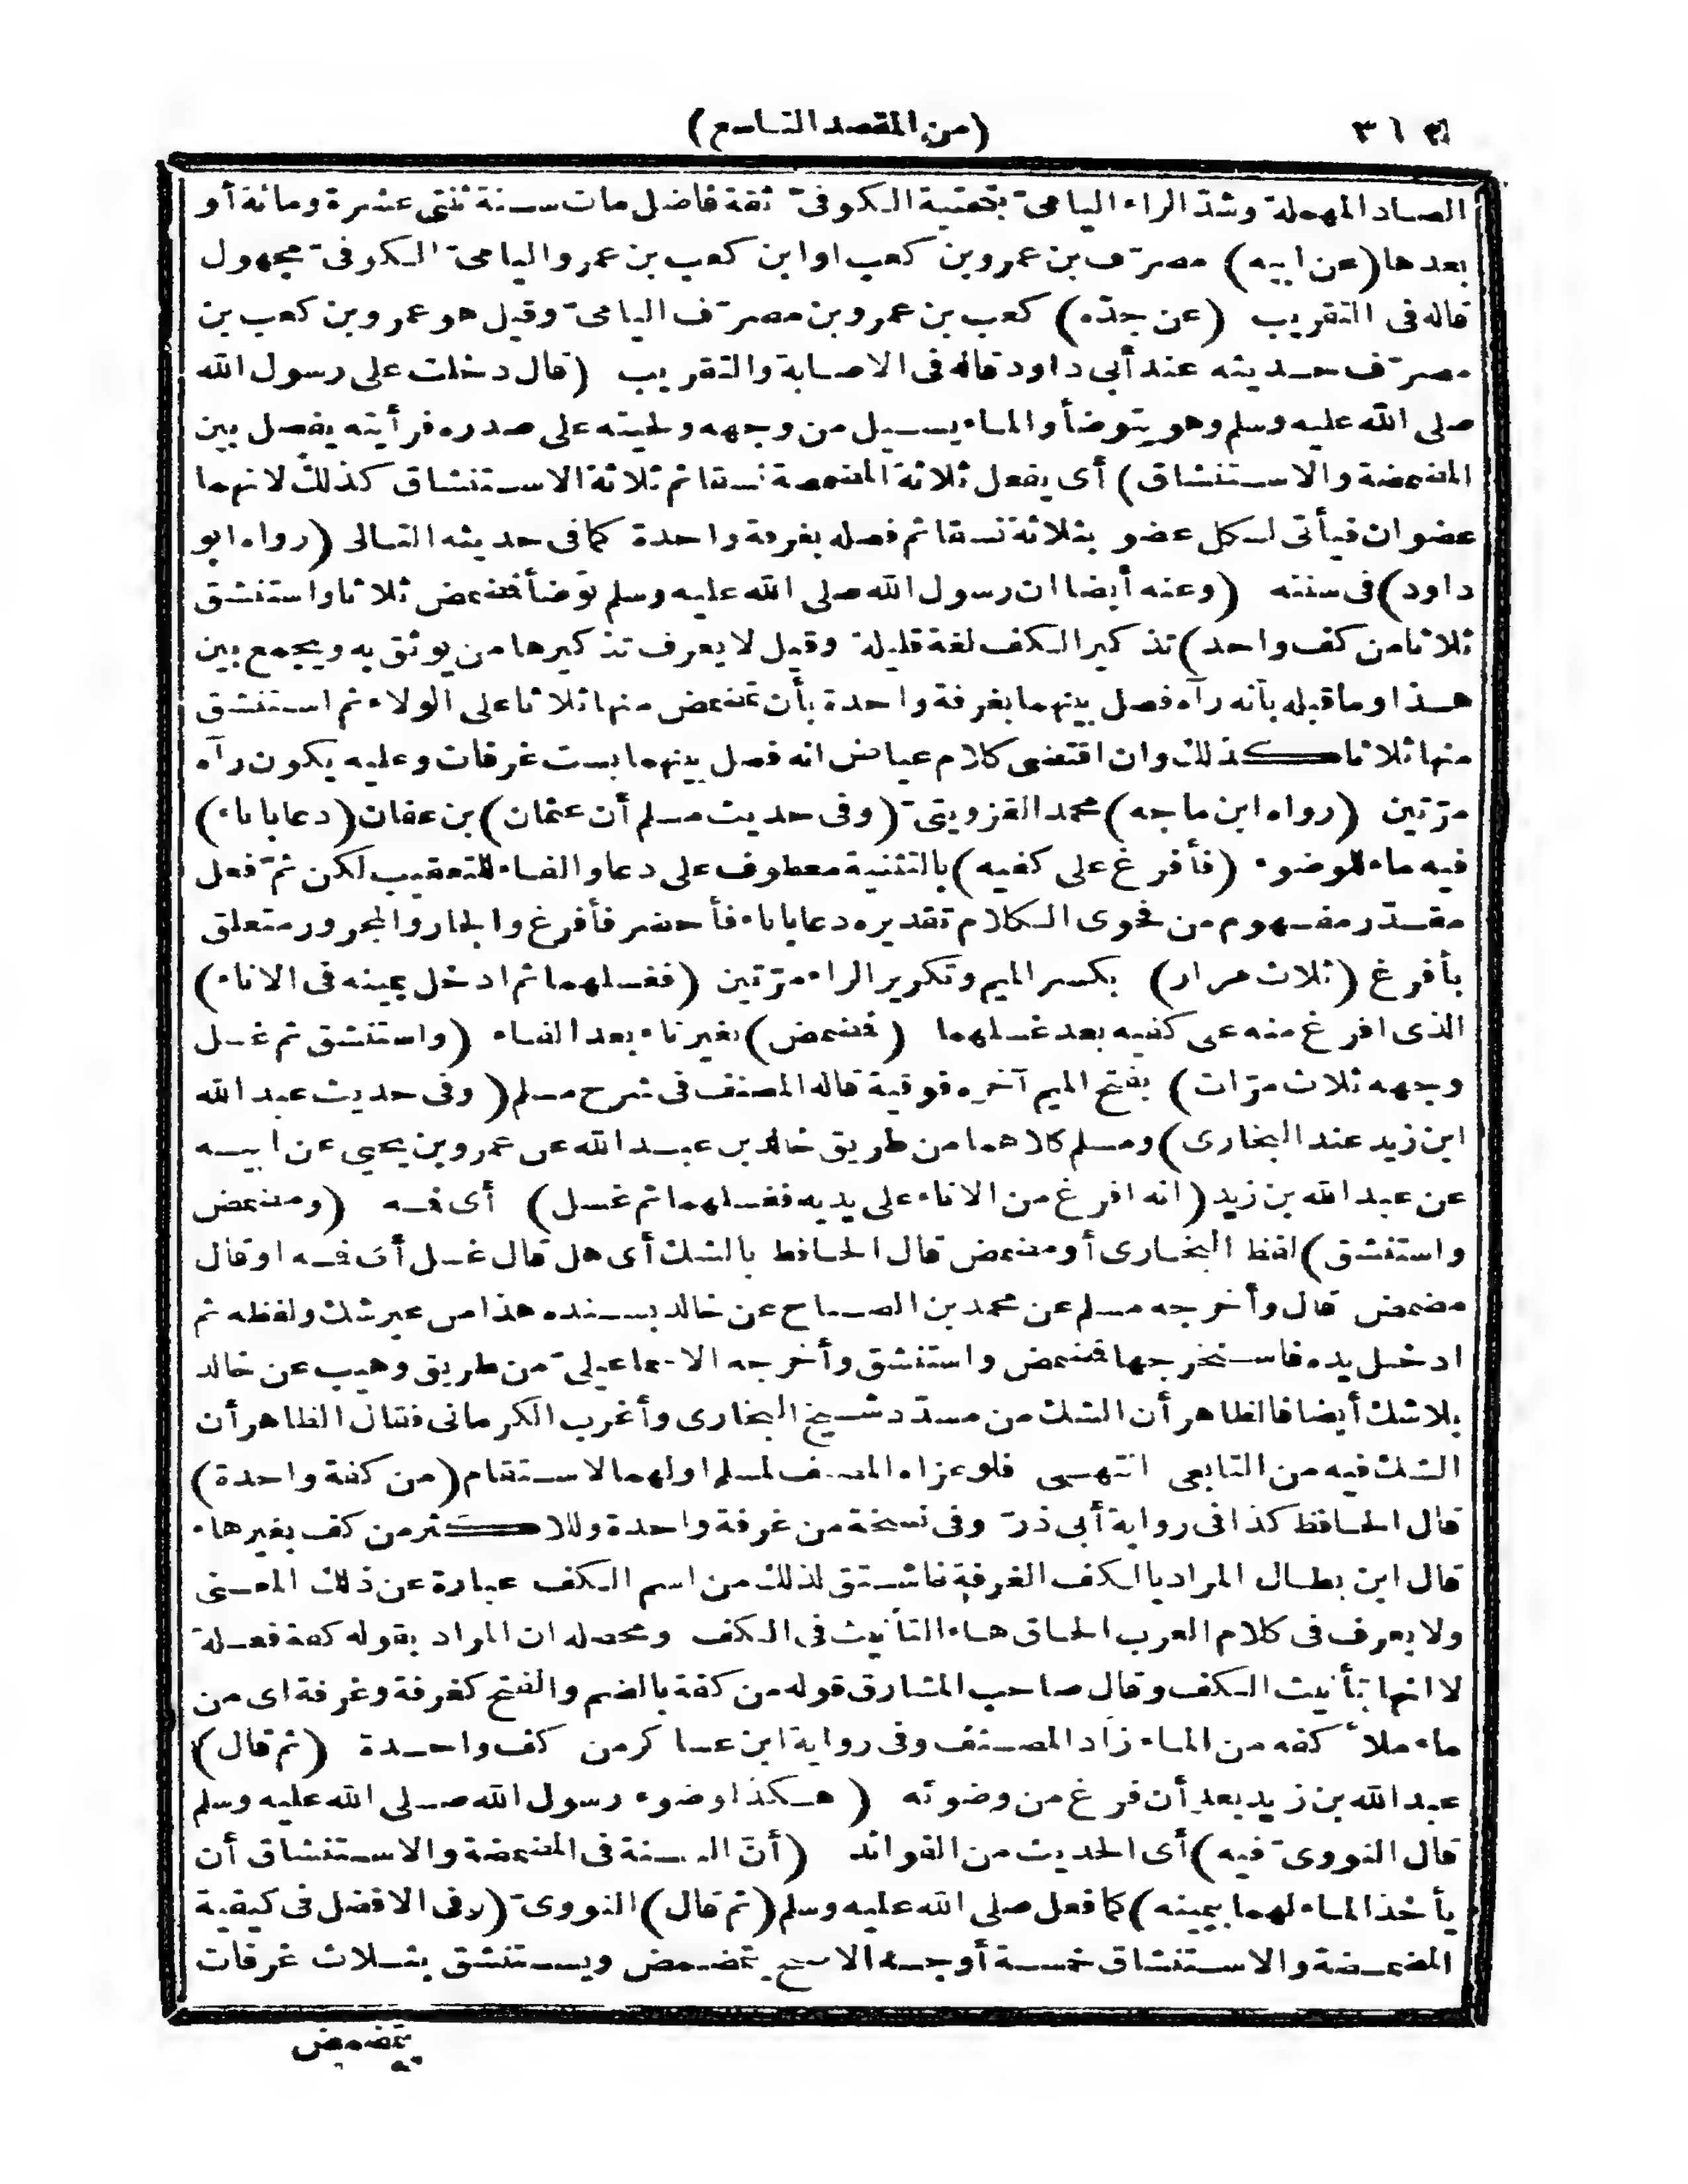 (من المقصد التاسع)
الصاد المهملة وشدّ الراء اليامىّ بتحتية الكوفىّ ثقة فاضل مات سنة ثنتى عشرة ومائة أو
بعدها (عن ابيه) مصرّف بن عمرو بن كعب او ابن كعب بن عمرو اليامىّ الكوفىّ مجهول
قاله فى التقريب (عن جدّه) كعب بن عمرو بن مصرّف اليامىّ وقيل هو عمرو بن كعب بن
مصرّف حديثه عند أبى داود قاله فى الاصابة والتقريب (قال دخلت على رسول الله
صلى الله عليه وسلم وهو يتوضأ والماء يسيل من وجهه ولحيته على صدره فرأيته يفصل بين
المضمضة والاستنشاق) أى يفعل ثلاثة المضمضة نسقا ثم ثلاثة الاستنشاق كذلك لانهما
عضوان فيأتى لكل عضو بثلاثة نسقا ثم فصله بغرفة واحدة كما فى حديثه التالى (رواه ابو
داود) فى سننه (وعنه أيضا ان رسول الله صلى الله عليه وسلم توضأ فمضمض ثلاثا واستنشق
ثلاثا من كف واحد) تذكير الكف لغة قليلة وقيل لا يعرف تذكيرها من يوثق به ويجمع بين
هذا وما قبله بأنه رآه فصل بينهما بغرفة واحدة بأن تمضمض منها ثلاثا على الولاء ثم استنشق
منها ثلاثا كذلك وان اقتضى كلام عياض انه فصل بينهما بست غرفات وعليه يكون رآه
مرّتين (رواه ابن ماجه) محمد القزوينىّ (وفى حديث مسلم أن عثمان) بن عفان (دعا باناء)
فيه ماء للوضوء (فأفرغ على كفيه) بالتثنية معطوف على دعا والفاء للتعقيب لكن ثمّ فعل
مقدّر مفهوم من فحوى الكلام تقديره دعا باناء فأحضر فأفرغ والجار والمجرور متعلق
بأفرغ (ثلاث مرار) بكسر الميم وتكرير الراء مرّتين (فغسلهما ثم ادخل يمينه فى الاناء)
الذى افرغ منه على كفيه بعد غسلهما (فمضمض) بغير تاء بعد الفاء (واستنشق ثم غسل
وجهه ثلاث مرّات) بفتح الميم آخره فوقية قاله المصنف فى شرح مسلم (وفى حديث عبد الله
ابن زيد عند البخارى) ومسلم كلاهما من طريق خالد بن عبد الله عن عمرو بن يحيى عن ابيه
عن عبد الله بن زيد (انه افرغ من الاناء على يديه فغسلهما ثم غسل) أى فمه (ومضمض
واستنشق) لفظ البخارى أو مضمض قال الحافظ بالشك أى هل قال غسل أى فمه او قال
مضمض قال وأخرجه مسلم عن محمد بن الصباح عن خالد بسنده هذا من غير شك ولفظه ثم
ادخل يده فاستخرجها فمضمض واستنشق وأخرجه الاسماعيلىّ من طريق وهيب عن خالد
بلا شك أيضا فالظاهر أن الشك من مسدّد شيخ البخارى وأغرب الكرمانى فقال الظاهر أن
الشك فيه من التابعى انتهى فلو عزاه المصنف لمسلم او لهما لاستقام (من كفة واحدة)
قال الحافظ كذا فى رواية أبى ذرّ وفى نسخة من غرفة واحدة وللاكثر من كف بغير هاء
قال ابن بطال المراد بالكف الغرفة فاشتق لذلك من اسم الكف عبارة عن ذلك المعنى
ولا يعرف فى كلام العرب الحاق هاء التأنيث فى الكف ومحصله ان المراد بقوله كفة فعلة
لا انها تأنيث الكف وقال صاحب المشارق قوله من كفة بالضم والفتح كغرفة وغرفة اى من
ماء ملأ كفه من الماء زاد المصنف وفى رواية ابن عساكر من كف واحدة (ثم قال)
عبد الله بن زيد بعد أن فرغ من وضوئه (هكذا وضوء رسول الله صلى الله عليه وسلم
قال النووىّ فيه) أى الحديث من الفوائد (أنّ السنة فى المضمضة والاستنشاق أن
يأخذ الماء لهما بيمينه) كما فعل صلى الله عليه وسلم (ثم قال) النووىّ (وفى الافضل فى كيفية
المضمضة والاستنشاق خمسة أوجه الاصح يتمضمض ويستنشق بثلاث غرفات
يتمضمض